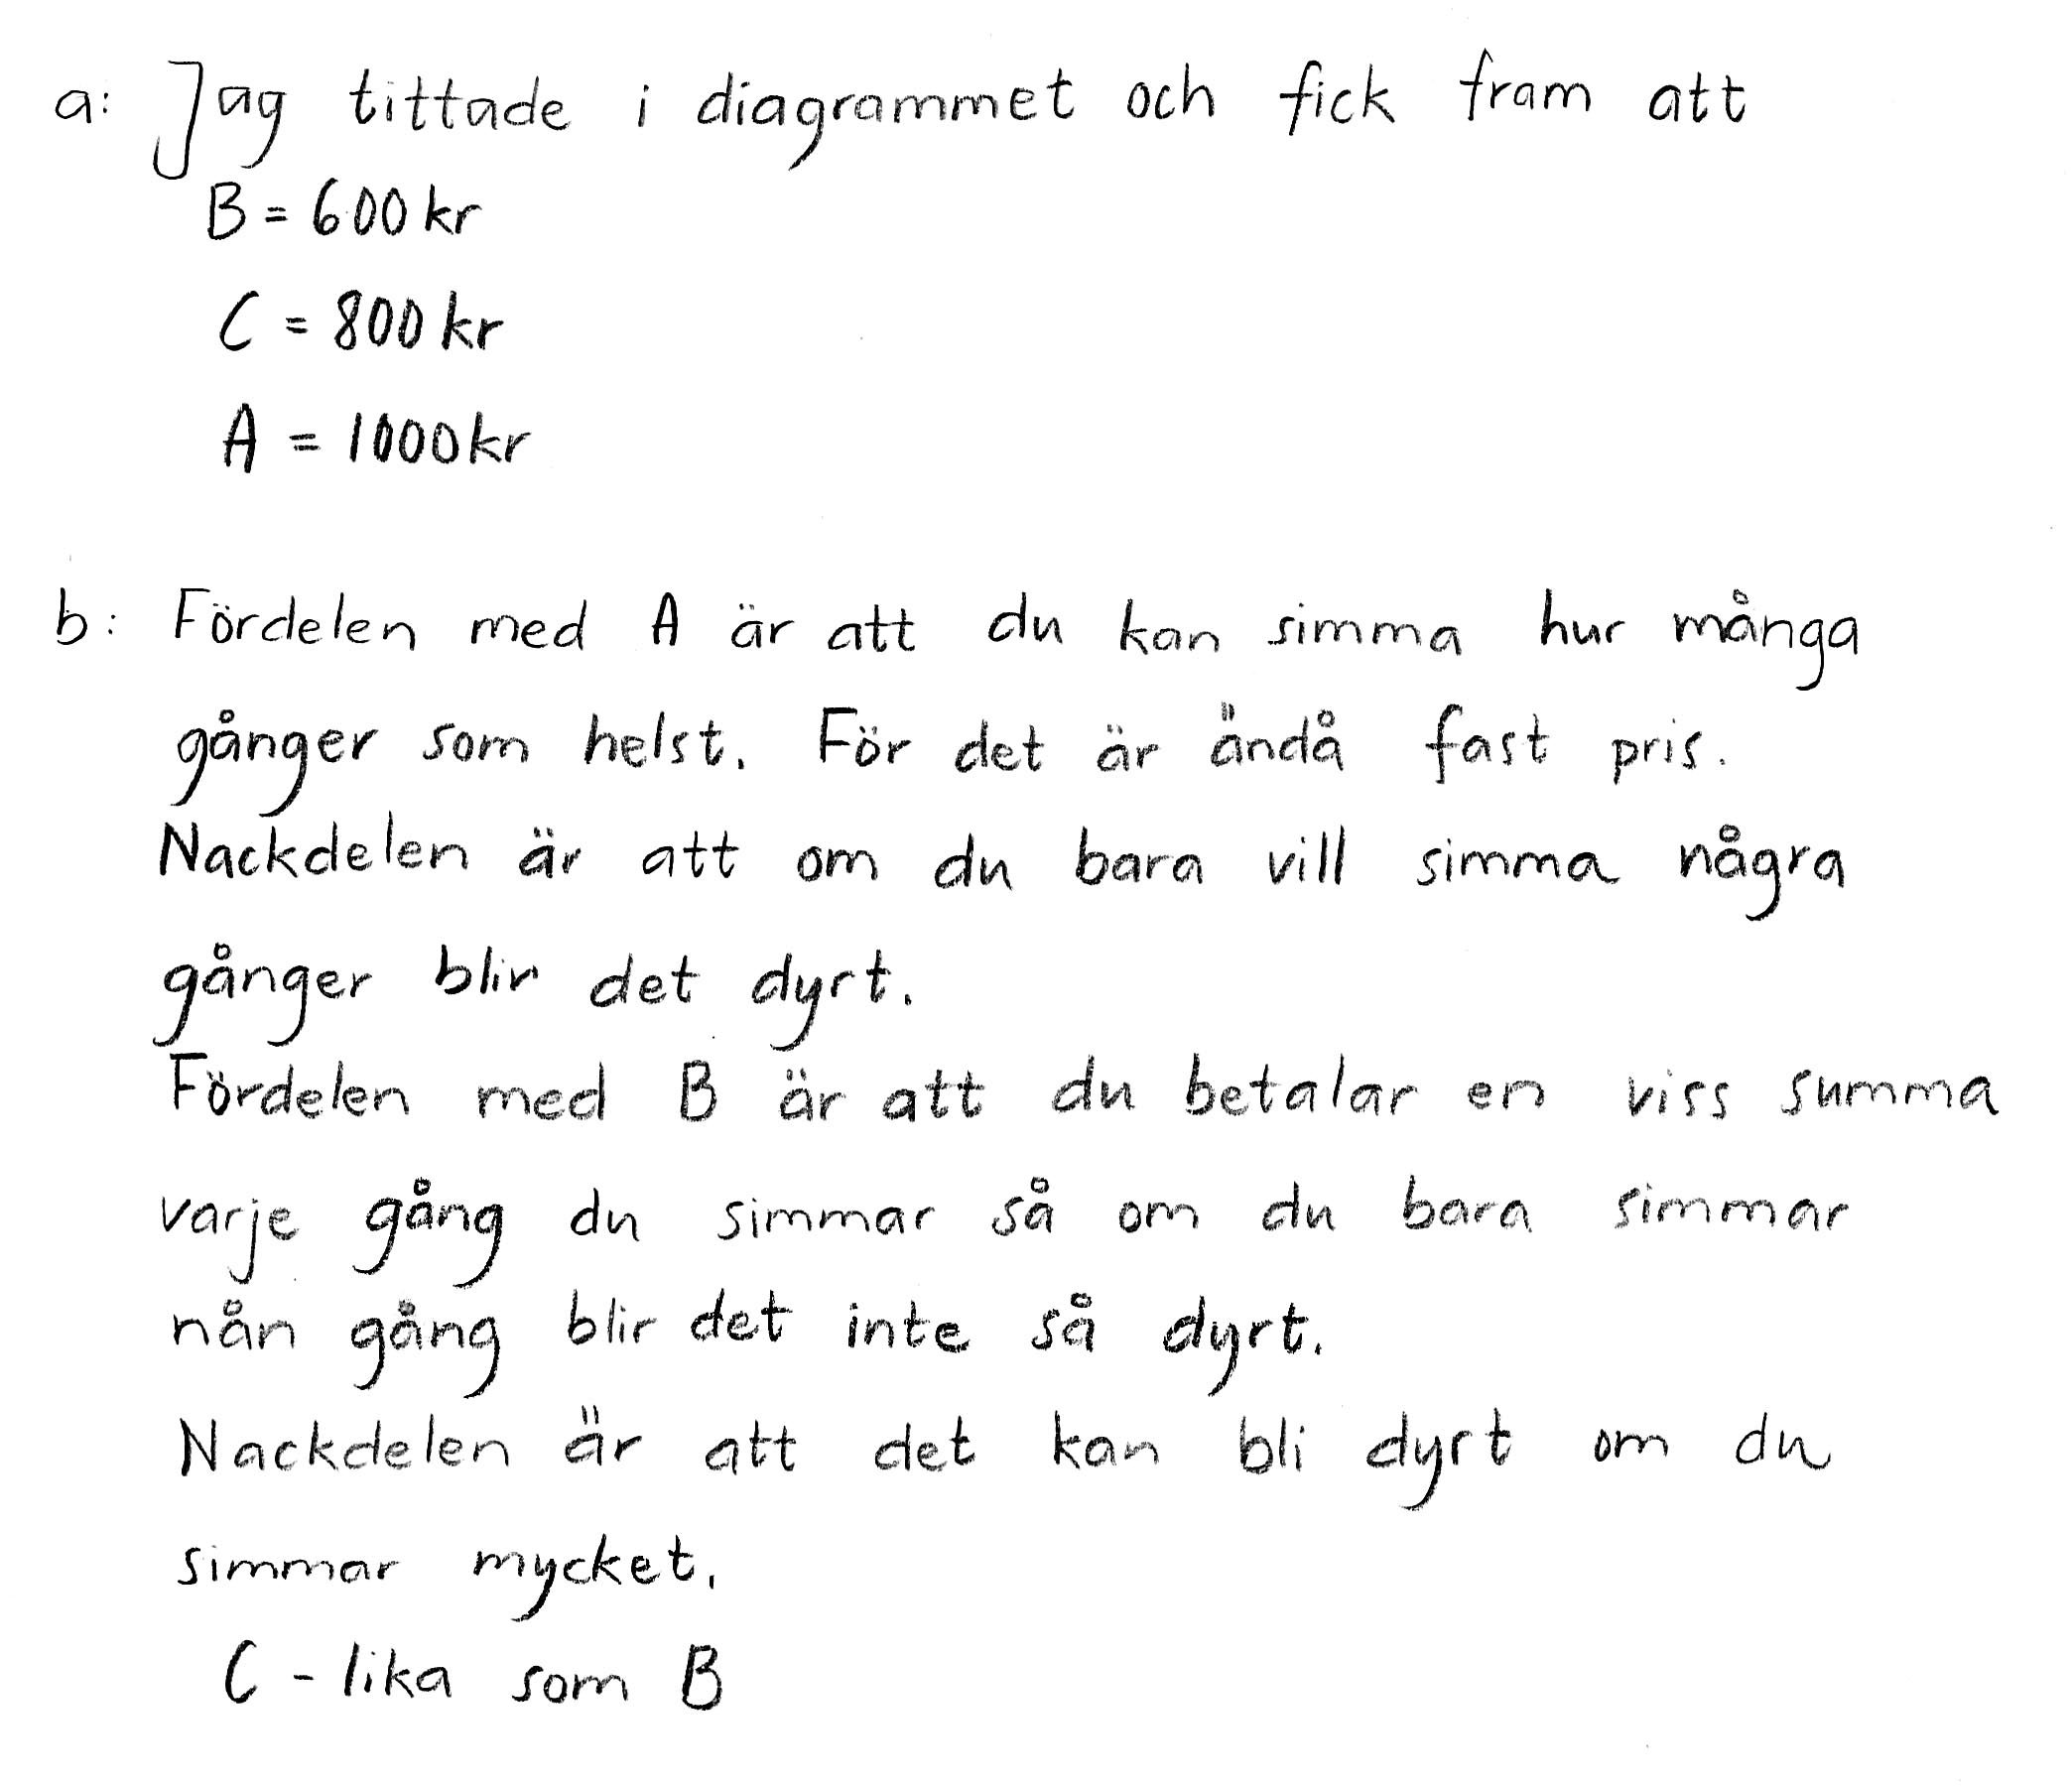 a: Jag tittade i diagrammet och fick fram att
B = 600 kr
C = 800 kr
A = 1000 kr
b: Fördelen med A är att du kan simma hur många
gånger som helst. För det är ändå fast pris.
Nackdelen är att om du bara vill simma några
gånger blir det dyrt.
Fördelen med B är att du betalar en viss summa
varje gång du simmar så om du bara simmar
nån gång blir det inte så dyrt.
Nackdelen är att det kan bli dyrt om du
simmar mycket.
C - lika som B